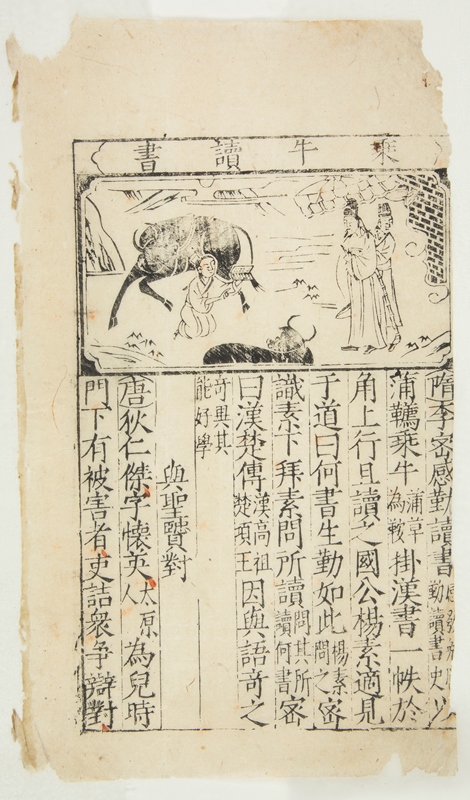 乘牛讀書
隋李密感勤讀書勤讀書史
蒲韉乘牛蒲草為鞍掛漢書一帙於
角上行且讀之國公楊素適見
于道曰何書生勤如此楊素問之密
識素下拜素問所讀問其所讀何書密
曰漢楚傳漢高祖楚項王因與語奇之
奇異其能好學
與聖賢對
唐狄仁傑字懷英太原人為兒時
門下有被害者吏詰衆争辯對